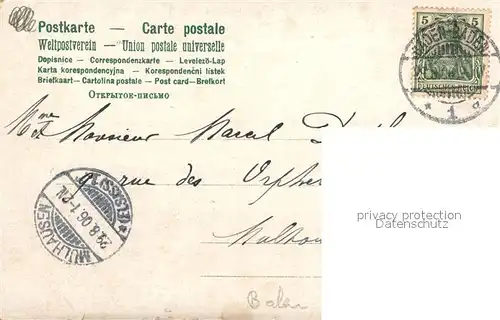 Postkarte — Carte postale
Weltpostverein — Union postale universelle
Dopisnice — Correspondenzkarte — Levelező-Lap
Karta korespondencyjna — Korespondenční lístek
Briefkaart — Cartolina postale — Post card — Brefkort
ОТКРЫТОЕ-ПИСЬМО
5 5
BADEN-BADEN
DEUTSCHES REICH
* 1 a
Monsieur Marcel
9 rue des
privacy protection
Datenschutz
(ELSASS)
29.8.06.1-2N.
MÜLHAUSEN